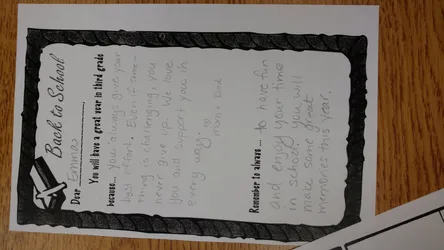 Back to School
Dear Emma,
You will have a great year in third grade
because... you always give your
best effort. Even if some-
thing is challenging, you
never give up. We love
you and support you in
every way. ☺
mom & Dad
Remember to always ... to have fun
and enjoy your time
in school. You will
make some great
memories this year.